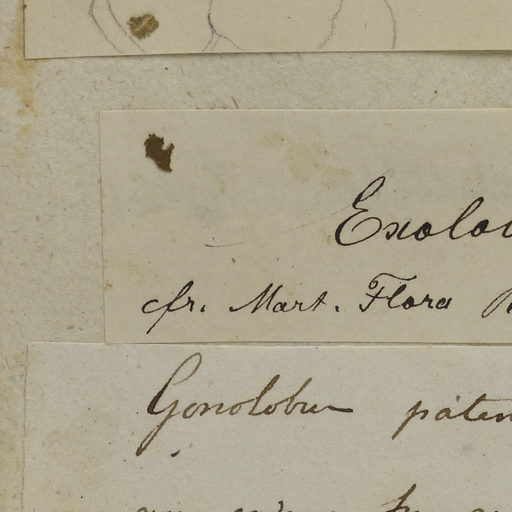 Exolo
cfr. Mart. Flora
Gonolobus paten